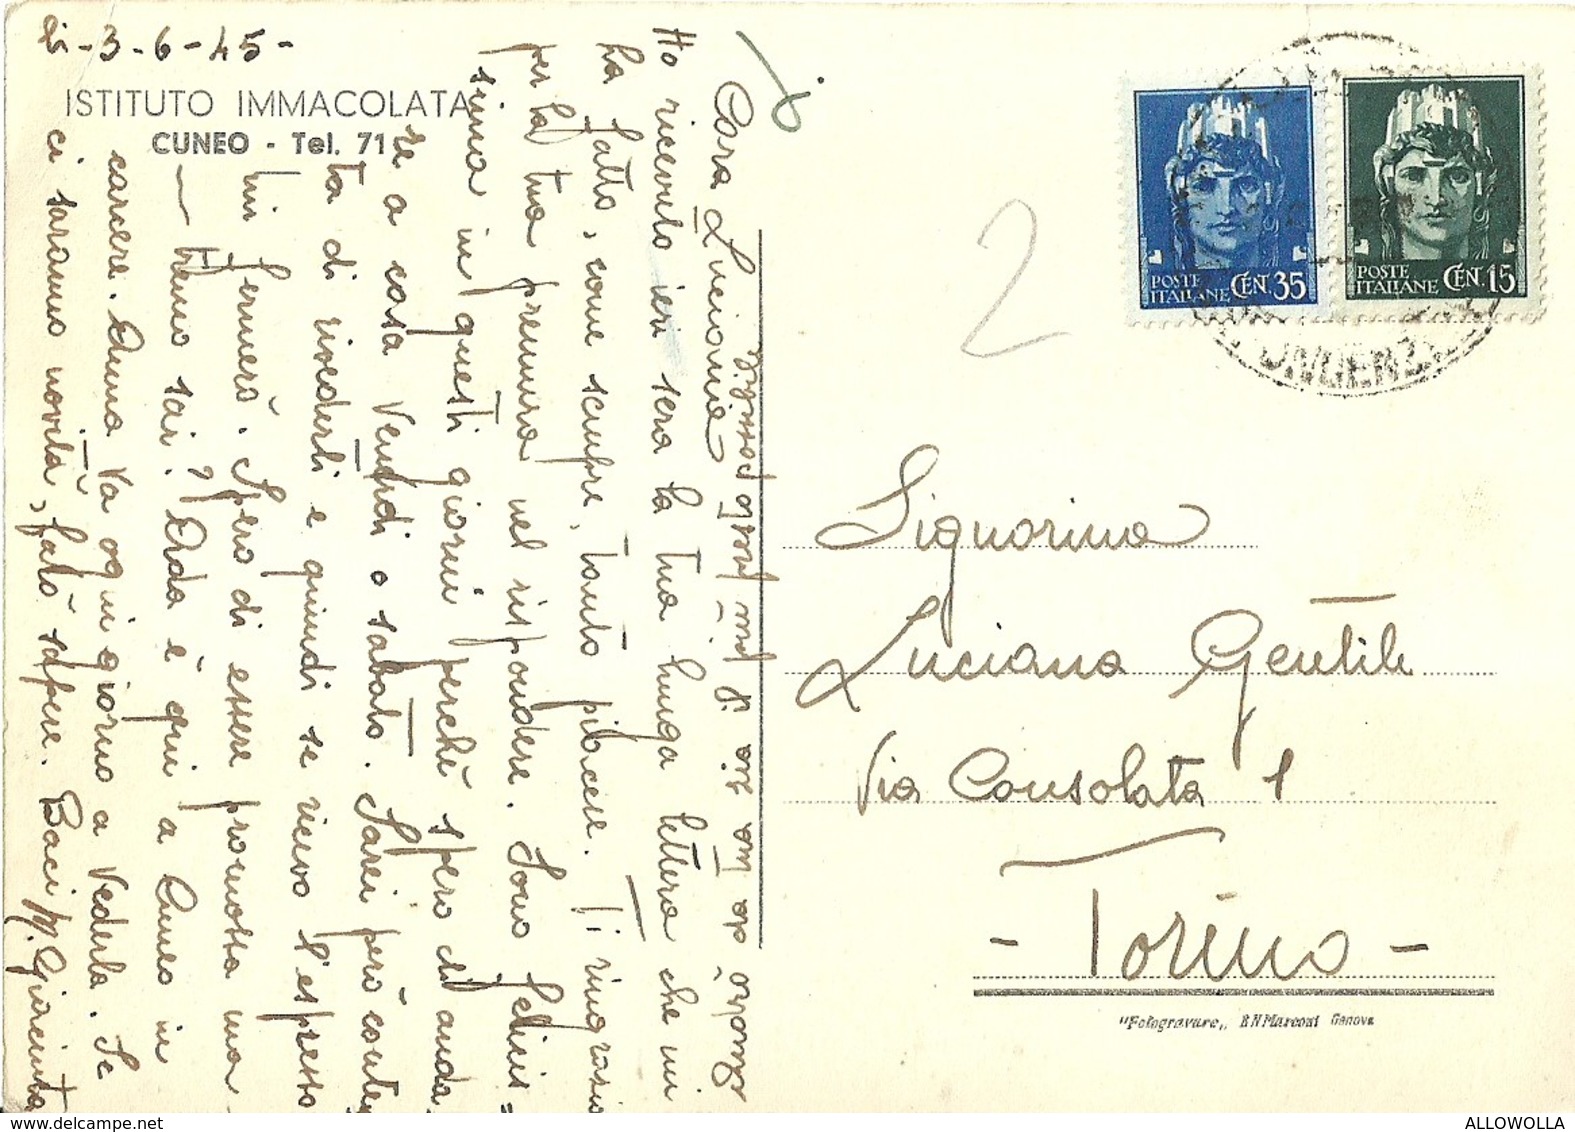 li - 3 - 6 - 45 -
ISTITUTO IMMACOLATA
CUNEO - Tel. 71
Cara Luciana
Ho ricevuto ieri sera la tua lunga lettera che mi
ha fatto, come sempre, tanto piacere. Ti ringrazio
per la tua premura nel rispondere. Sono felicis=
sima in questi giorni perchè spero di anda
re a casa Venerdì o sabato. Sarei però conten
ta di rivederti e quindi se ricevo l'espresso
mi fermerò. Spero di essere promossa ma
- Meno sai? Elda è qui a Cuneo in
carcere. Emma va ogni giorno a vederla. Se
ci saranno novità, farò sapere. Baci M. Giacinta
da Ma sia il più presto possibile
POSTE ITALIANE CENT. 35
POSTE ITALIANE CENT. 15
2
Signorina
Luciana Gentile
Via Consolata 1
- Torino -
"Fotogravure,, B N Marconi Genova
ALLOWOLLA